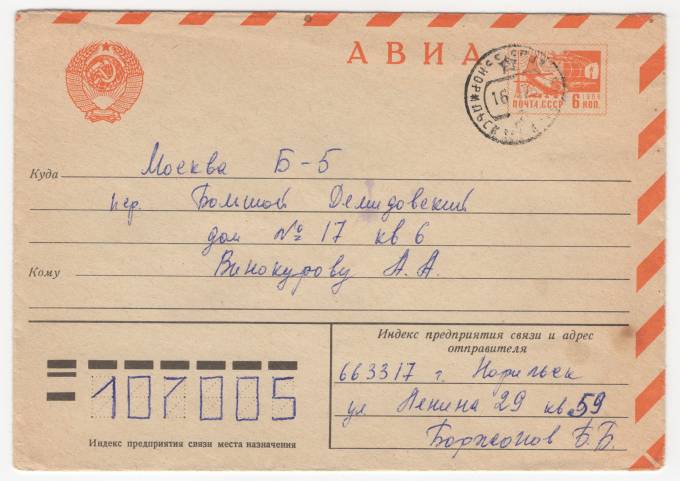 АВИА
ПОЧТА СССР
1966
6 коп.
Куда Москва Б-5
пер. Большой Демидовский
дом № 17 кв 6
Кому Винокурову А. А.
Индекс предприятия связи и адрес
отправителя
663317 г. Норильск
ул Ленина 29 кв 59
Б. Б.
107005
Индекс предприятия связи места назначения